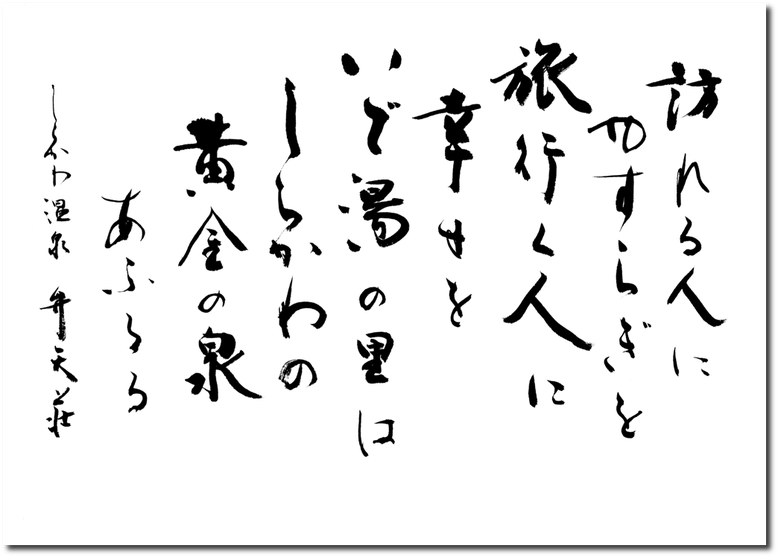 訪れる人に
やすらぎを
旅行く人に
幸せを
いで湯の里は
しらかわの
黄金の泉
あふるる
しらかわ温泉 弁天荘